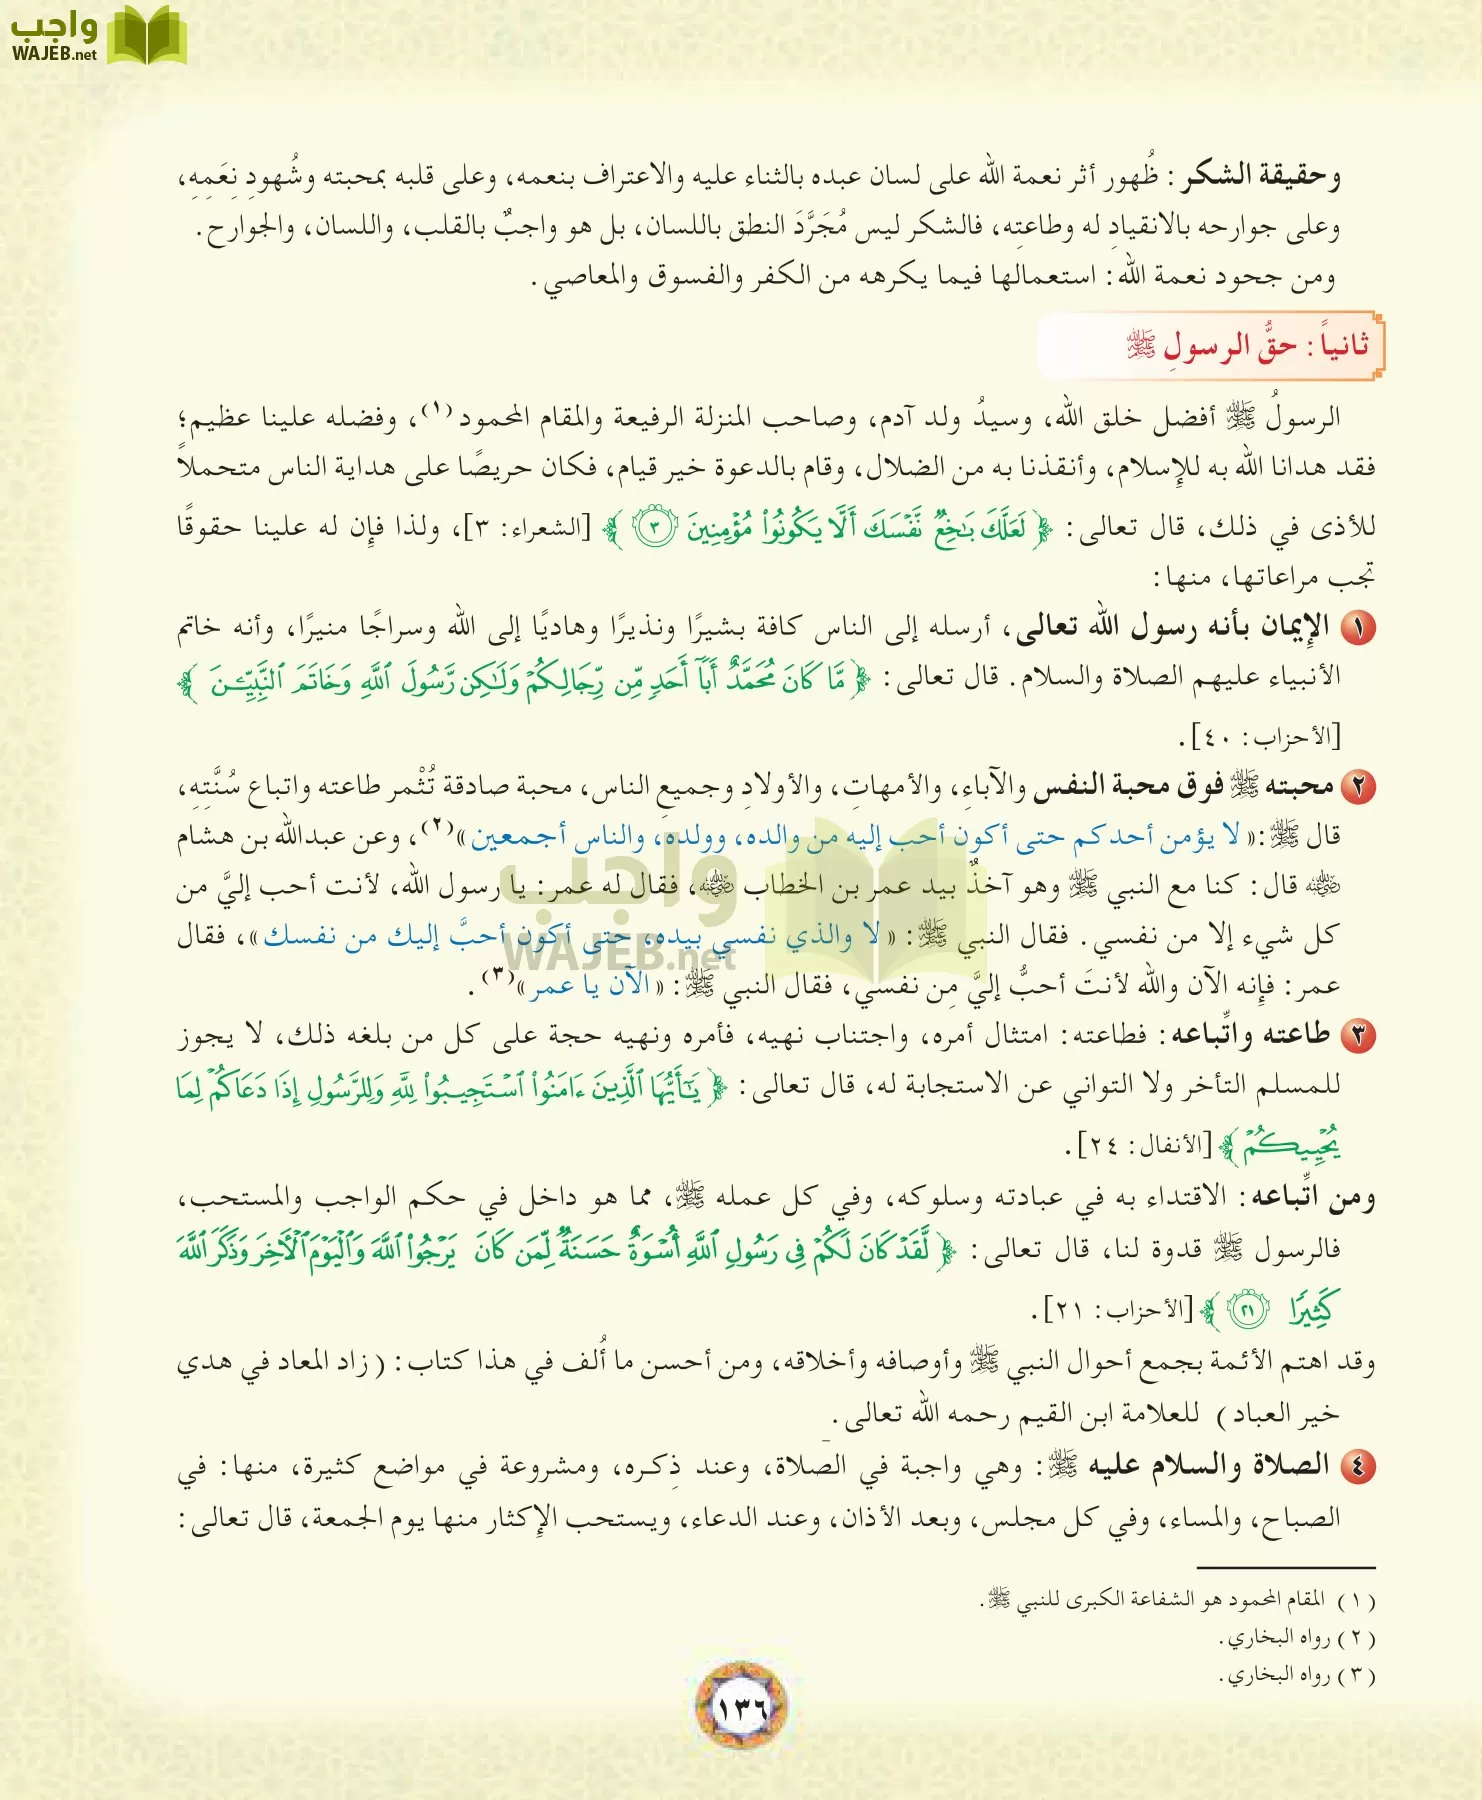 واجب
WAJEB.net
وحقيقة الشكر: ظُهور أثر نعمة الله على لسان عبده بالثناء عليه والاعتراف بنعمه، وعلى قلبه بمحبته وشُهودِ نِعَمِهِ،
وعلى جوارحه بالانقيادِ له وطاعتِه، فالشكر ليس مُجَرَّدَ النطق باللسان، بل هو واجبٌ بالقلب، واللسان، والجوارح.
ومن جحود نعمة الله: استعمالها فيما يكرهه من الكفر والفسوق والمعاصي.
ثانياً: حقُّ الرسولِ ﷺ
الرسولُ ﷺ أفضل خلق الله، وسيدُ ولد آدم، وصاحب المنزلة الرفيعة والمقام المحمود (١)، وفضله علينا عظيم؛
فقد هدانا الله به للإسلام، وأنقذنا به من الضلال، وقام بالدعوة خير قيام، فكان حريصًا على هداية الناس متحملاً
للأذى في ذلك، قال تعالى: ﴿لَعَلَّكَ بَٰخِعٞ نَّفۡسَكَ أَلَّا يَكُونُواْ مُؤۡمِنِينَ ٣﴾ [الشعراء: ٣]، ولذا فإن له علينا حقوقًا
تجب مراعاتها، منها:
١ الإيمان بأنه رسول الله تعالى، أرسله إلى الناس كافة بشيرًا ونذيرًا وهاديًا إلى الله وسراجًا منيرًا، وأنه خاتم
الأنبياء عليهم الصلاة والسلام. قال تعالى: ﴿مَّا كَانَ مُحَمَّدٌ أَبَآ أَحَدٖ مِّن رِّجَالِكُمۡ وَلَٰكِن رَّسُولَ ٱللَّهِ وَخَاتَمَ ٱلنَّبِيِّـۧنَ﴾
[الأحزاب: ٤٠].
٢ محبته ﷺ فوق محبة النفس والآباءِ، والأمهاتِ، والأولادِ وجميعِ الناس، محبة صادقة تُثْمر طاعته واتباع سُنَّتِهِ،
قال ﷺ: «لا يؤمن أحدكم حتى أكون أحب إليه من والده، وولده، والناس أجمعين»(٢)، وعن عبدالله بن هشام
رضي الله عنه قال: كنا مع النبي ﷺ وهو آخذٌ بيد عمر بن الخطاب رضي الله عنه، فقال له عمر: يا رسول الله، لأنت أحب إليَّ من
كل شيء إلا من نفسي. فقال النبي ﷺ: «لا والذي نفسي بيده، حتى أكون أحبَّ إليك من نفسك»، فقال
عمر: فإنه الآن والله لأنتَ أحبُّ إليَّ مِن نفسي، فقال النبي ﷺ: «الآن يا عمر»(٣).
واجب
WAJEB.net
٣ طاعته واتِّباعه: فطاعته: امتثال أمره، واجتناب نهيه، فأمره ونهيه حجة على كل من بلغه ذلك، لا يجوز
للمسلم التأخر ولا التواني عن الاستجابة له، قال تعالى: ﴿يَٰٓأَيُّهَا ٱلَّذِينَ ءَامَنُواْ ٱسۡتَجِيبُواْ لِلَّهِ وَلِلرَّسُولِ إِذَا دَعَاكُمۡ لِمَا
يُحۡيِيكُمۡ﴾ [الأنفال: ٢٤].
ومن اتِّباعه: الاقتداء به في عبادته وسلوكه، وفي كل عمله ﷺ، مما هو داخل في حكم الواجب والمستحب،
فالرسول ﷺ قدوة لنا، قال تعالى: ﴿لَّقَدۡ كَانَ لَكُمۡ فِي رَسُولِ ٱللَّهِ أُسۡوَةٌ حَسَنَةٞ لِّمَن كَانَ يَرۡجُواْ ٱللَّهَ وَٱلۡيَوۡمَ ٱلۡأٓخِرَ وَذَكَرَ ٱللَّهَ
كَثِيرٗا ٢١﴾ [الأحزاب: ٢١].
وقد اهتم الأئمة بجمع أحوال النبي ﷺ وأوصافه وأخلاقه، ومن أحسن ما أُلف في هذا كتاب: (زاد المعاد في هدي
خير العباد) للعلامة ابن القيم رحمه الله تعالى.
٤ الصلاة والسلام عليه ﷺ: وهي واجبة في الصلاة، وعند ذِكره، ومشروعة في مواضع كثيرة، منها: في
الصباح، والمساء، وفي كل مجلس، وبعد الأذان، وعند الدعاء، ويستحب الإكثار منها يوم الجمعة، قال تعالى:
(١) المقام المحمود هو الشفاعة الكبرى للنبي ﷺ.
(٢) رواه البخاري.
(٣) رواه البخاري.
١٣٦